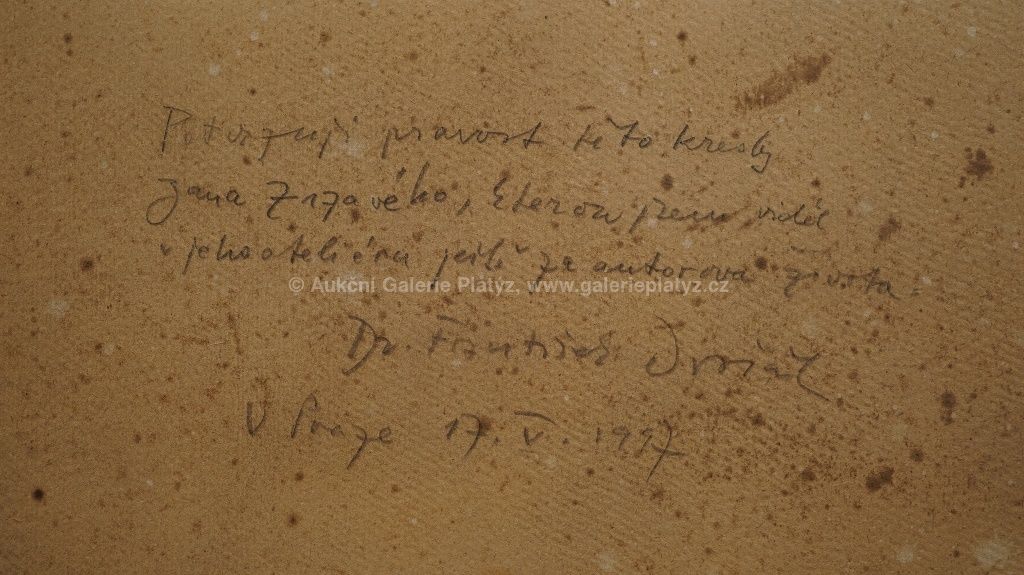 Potvrzuji pravost této kresby
Jana Zrzavého, kterou jsem viděl
v jeho atelieru ještě za autorova života.
© Aukční Galerie Platýz, www.galerieplatyz.cz
Dr. František Dvořák
V Praze 17. V. 1997